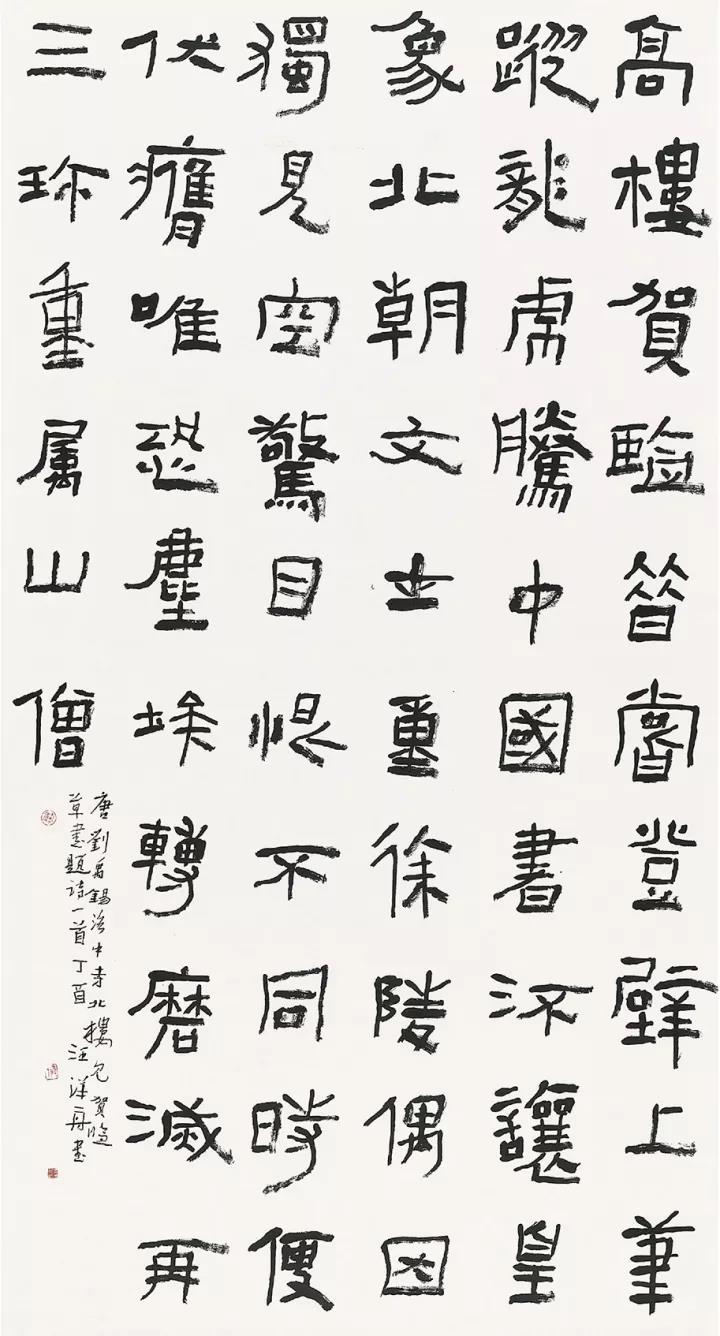 高樓賀監昔嘗登壁上筆
蹤龍虎騰中國書流讓皇
象北朝文士重徐陵偶因
獨見空驚目恨不同時便
伏膺唯恐塵埃轉磨滅再
三珍重属山僧
唐劉禹錫洛中寺北樓見賀監
草書題詩一首丁酉 汪洋舟書